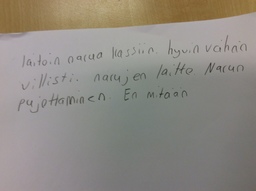 laitoin narua kassiin. hyvin vaihnin
villisti. narujen laitto Narun
pujottaminen. En mitään